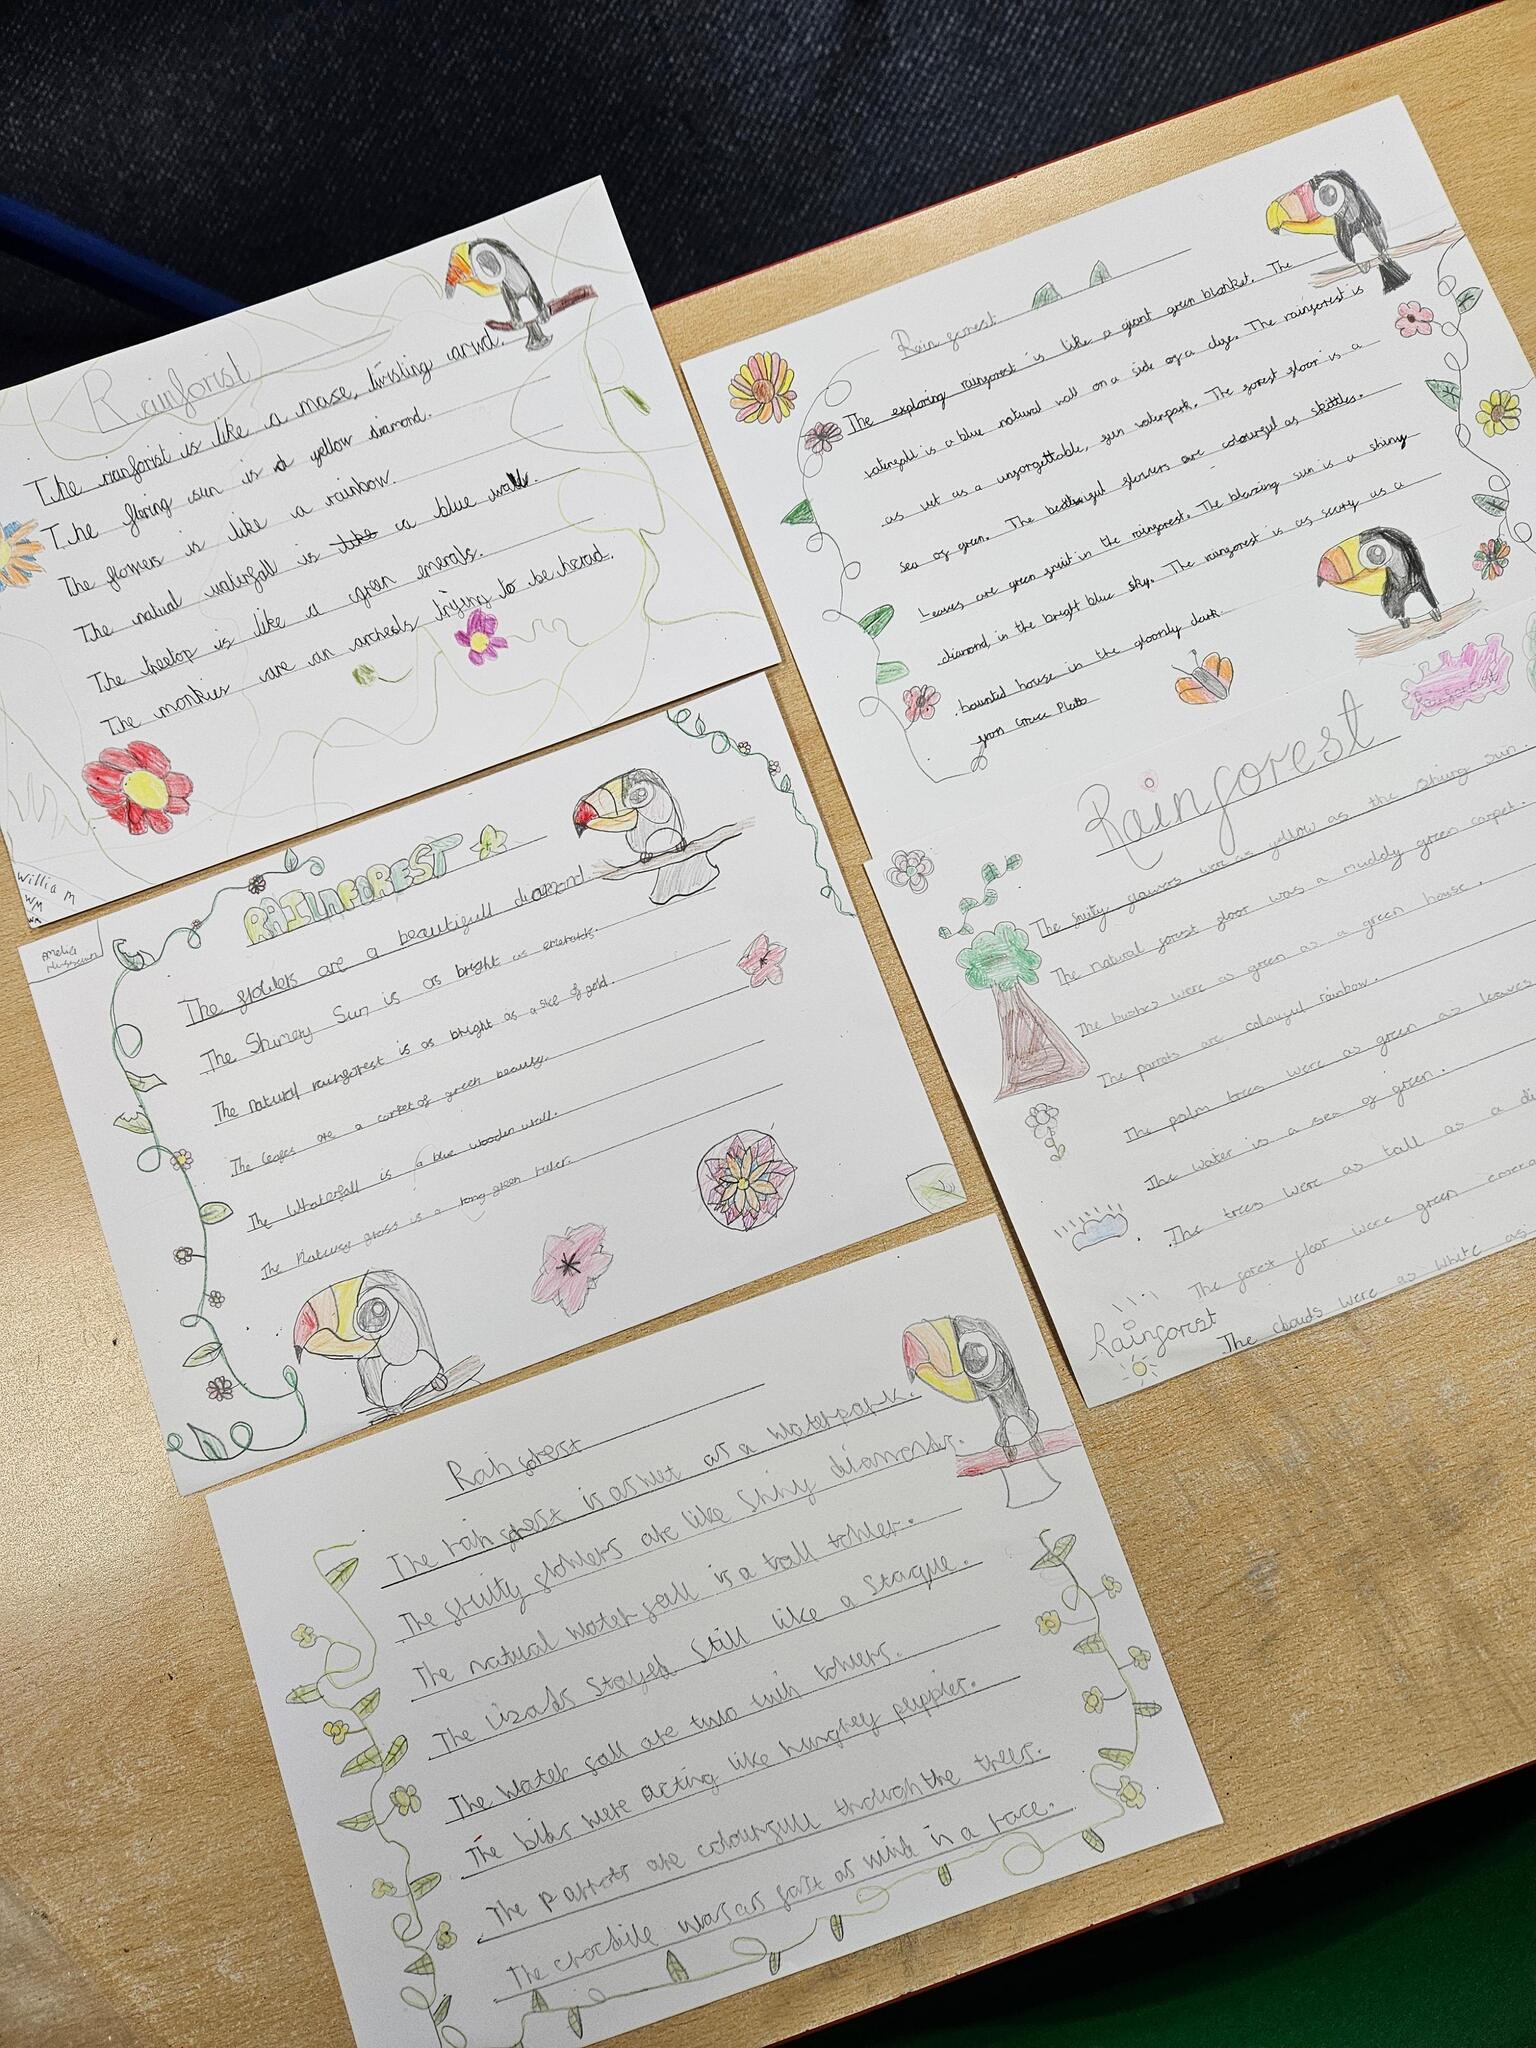 Rainforist
The rainforist is like a mase, twisting arwd.
The flaring sun is a yellow diamond.
The flowers is like a rainbow.
The natural waterfall is like a blue wall.
The treetop is like a green emerals.
The monkies are an archeols trying to be herad.
William
WM
Rainforest
The exploring rainforest is like a giant green blanket. The
waterfall is a blue natural wall on a side of a The rainforest is
as wet as a unforgettable, fun waterpark. The forest floor is a
sea of green. The flowers are colourful as skittles.
Leaves are green fruit in the rainforest. The blazing sun is a shiny
diamond in the bright blue sky. The rainforest is as scary as a
haunted house in the gloomly dark.
from Grace Platts
Amelia
Hussain
RAINFOREST
The flowers are a beautifull diamond.
The Shimery Sun is as bright as emeralds.
The natural rainforest is as bright as a slice of gold.
The leafes are a carpet of green beauty.
The Whaterfall is a blue wooden wall.
The Natury grass is a long green ruler.
Rainforest
Rainforest
The fruity flowers were as yellow as the shing sun.
The natural forest floor was a muddy green carpet.
The bushes were as green as a green house.
The parrots are colouful rainbow.
The palm trees were as green as leaves
The water is a sea of green.
The trees were as tall as a
The forest floor were green
The clouds were as white as
Rainforest
Rainforest
The rainforest is as wet as a waterpark.
The fruity flowers are like shiny diamonds.
The natural waterfall is a tall tower.
The lizards stayed still like a staque.
The water fall are two twin towers.
The bids were acting like hungrey puppier.
The parrots are colourfull through the trees.
The crocdile was as fast as wind in a race.